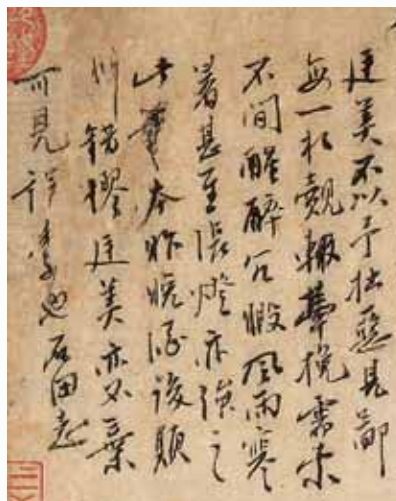 廷美不以予拙惡見鄙
每一相覿輒牽挽需索
不間醒醉冗暇風雨寒
暑甚至張燈亦強之
此筆本昨晚酒後顛
倒錯繆廷美亦不棄
可見愛也石田志